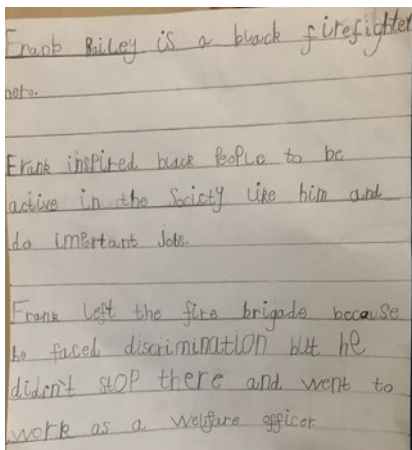 Frank Bailey is a black firefighter
hero.
Frank inspired black people to be
active in the Society like him and
do important Jobs.
Frank left the fire brigade because
he faced discrimination but he
didn't stop there and went to
work as a welfare officer.